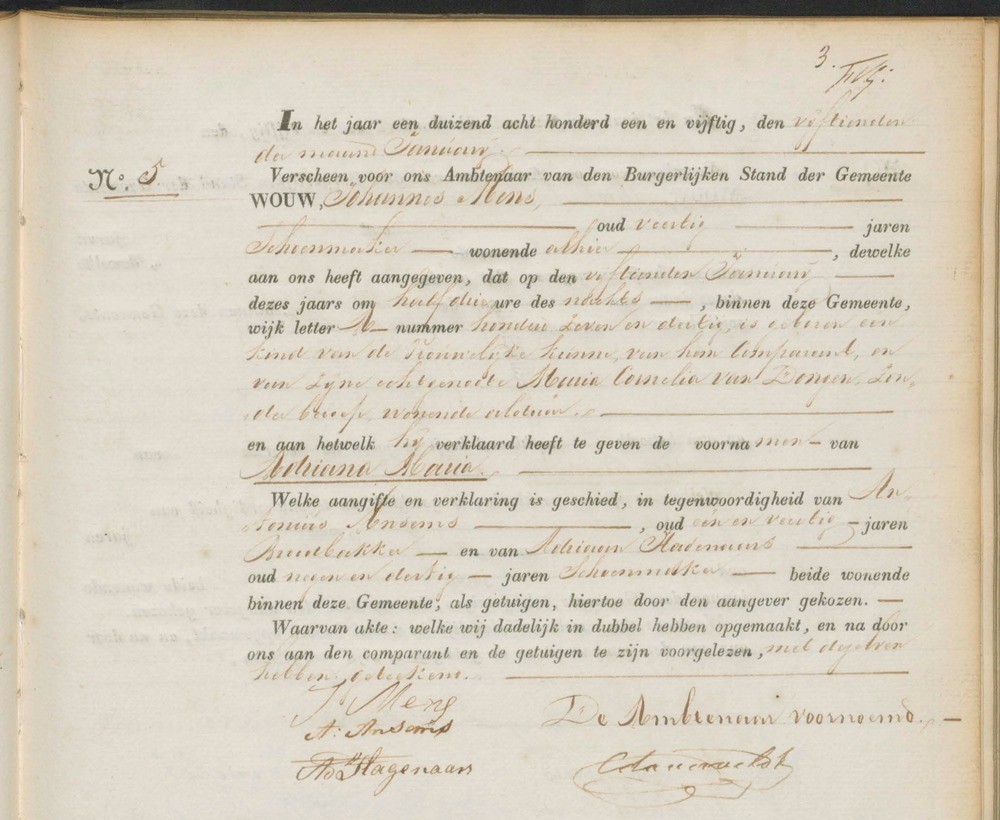 3.
No. 5.
In het jaar een duizend acht honderd een en vijftig, den vijftienden
der maand Januarij
Verscheen voor ons Ambtenaar van den Burgerlijken Stand der Gemeente
WOUW, Johannes Mens,
oud veertig jaren
Schoenmaker wonende alhier, dewelke
aan ons heeft aangegeven, dat op den vijftienden Januarij
dezes jaars om half drie ure des nachts, binnen deze Gemeente,
wijk letter nummer honderd zeven en dertig, is geboren een
kind van de vrouwelijke kunne, van hem Comparant, en
van zijne echtgenoote Maria Cornelia van Dongen, zon-
der beroep, wonende aldaar.
en aan hetwelk hij verklaard heeft te geven de voornamen van
Adriana Maria.
Welke aangifte en verklaring is geschied, in tegenwoordigheid van An-
tonius Ansems, oud een en veertig jaren
Broodbakker en van Adriaan Hagenaars
oud negen en dertig jaren Schoenmaker beide wonende
binnen deze Gemeente, als getuigen, hiertoe door den aangever gekozen.
Waarvan akte: welke wij dadelijk in dubbel hebben opgemaakt, en na door
ons aan den comparant en de getuigen te zijn voorgelezen, met dezelven
hebben geteekend.
J Mens
A. Ansems
De Ambtenaar voornoemd.
Ad Hagenaars